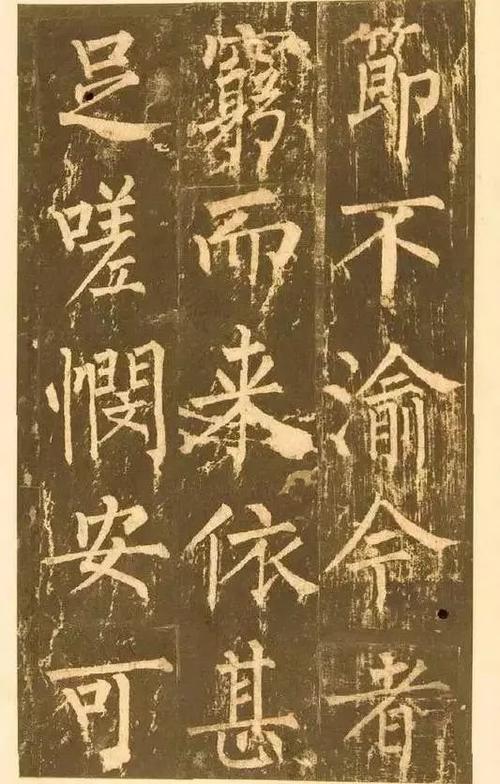 節不渝今者
窮而来依甚
足嗟憫安可